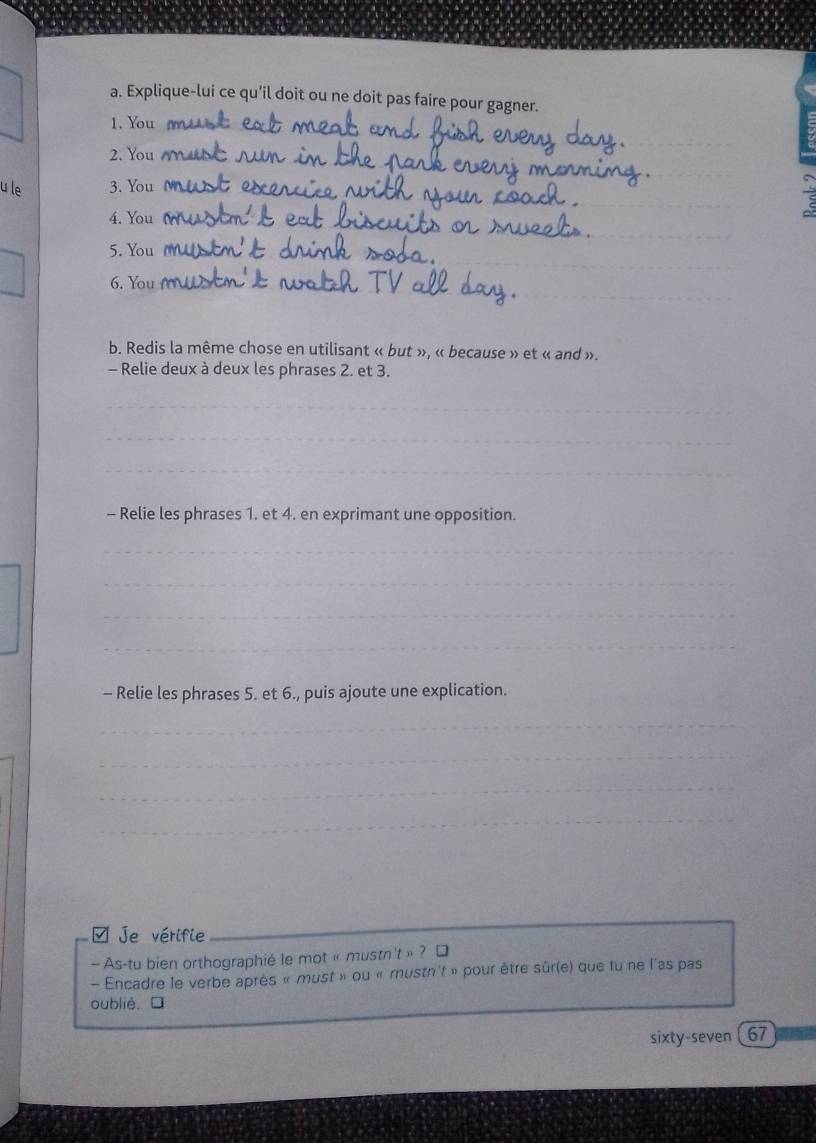 a. Explique-lui ce qu'il doit ou ne doit pas faire pour gagner.
1. You must eat meat and fish every day.
2. You must run in the park every morning.
u le
3. You must exercice with your coach.
4. You mustn't eat biscuits or sweets.
5. You mustn't drink soda.
6. You mustn't watch TV all day.
b. Redis la même chose en utilisant « but », « because » et « and ».
– Relie deux à deux les phrases 2. et 3.
– Relie les phrases 1. et 4. en exprimant une opposition.
– Relie les phrases 5. et 6., puis ajoute une explication.
Je vérifie
– As-tu bien orthographié le mot « mustn't » ?
– Encadre le verbe après « must » ou « mustn't » pour être sûr(e) que tu ne l'as pas
oublié.
sixty-seven 67
Book 2 Lesson 4